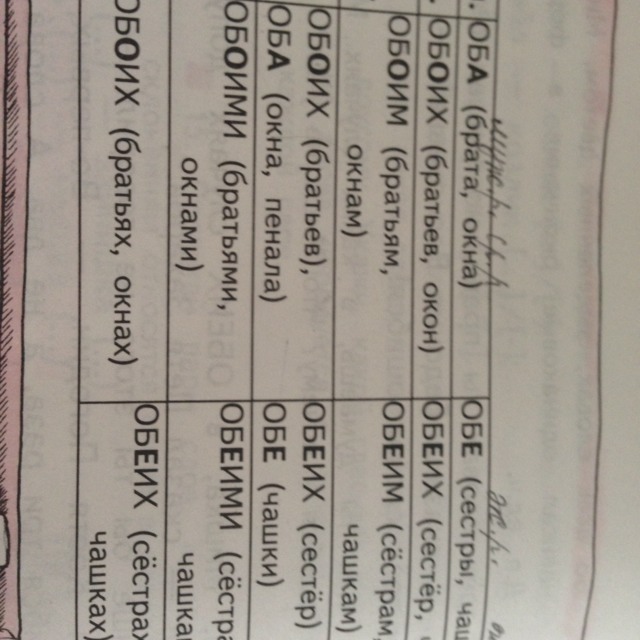 муж.р. ср.р ж.р.
ОБА (брата, окна) ОБЕ (сестры,
ОБОИХ (братьев, окон) ОБЕИХ (сестёр,
ОБОИМ (братьям, ОБЕИМ (сёстрам,
окнам) чашкам)
ОБОИХ (братьев), ОБЕИХ (сестёр)
ОБА (окна, пенала) ОБЕ (чашки)
ОБОИМИ (братьями, ОБЕИМИ (сёстра
окнами) чашка
ОБОИХ (братьях, окнах) ОБЕИХ (сёстрах
чашках)